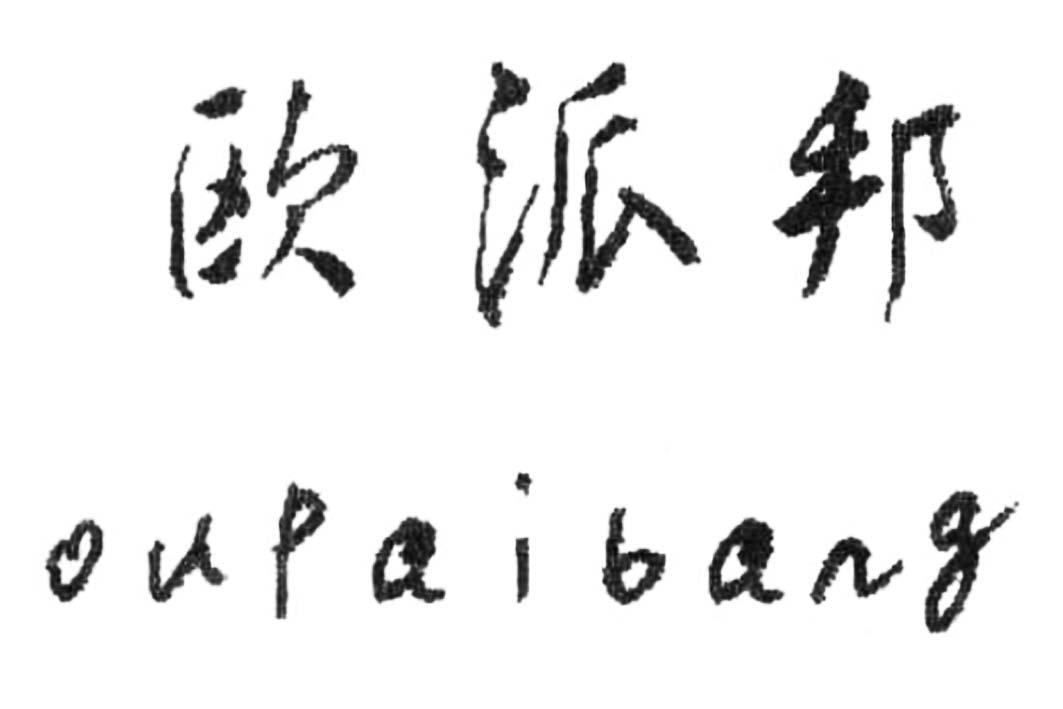 欧派邦
oupaibang